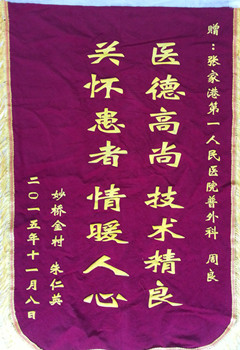 赠：张家港第一人民医院普外科 周良
医德高尚 技术精良
关怀患者 情暖人心
妙桥金村 朱仁英
二〇一五年十一月八日